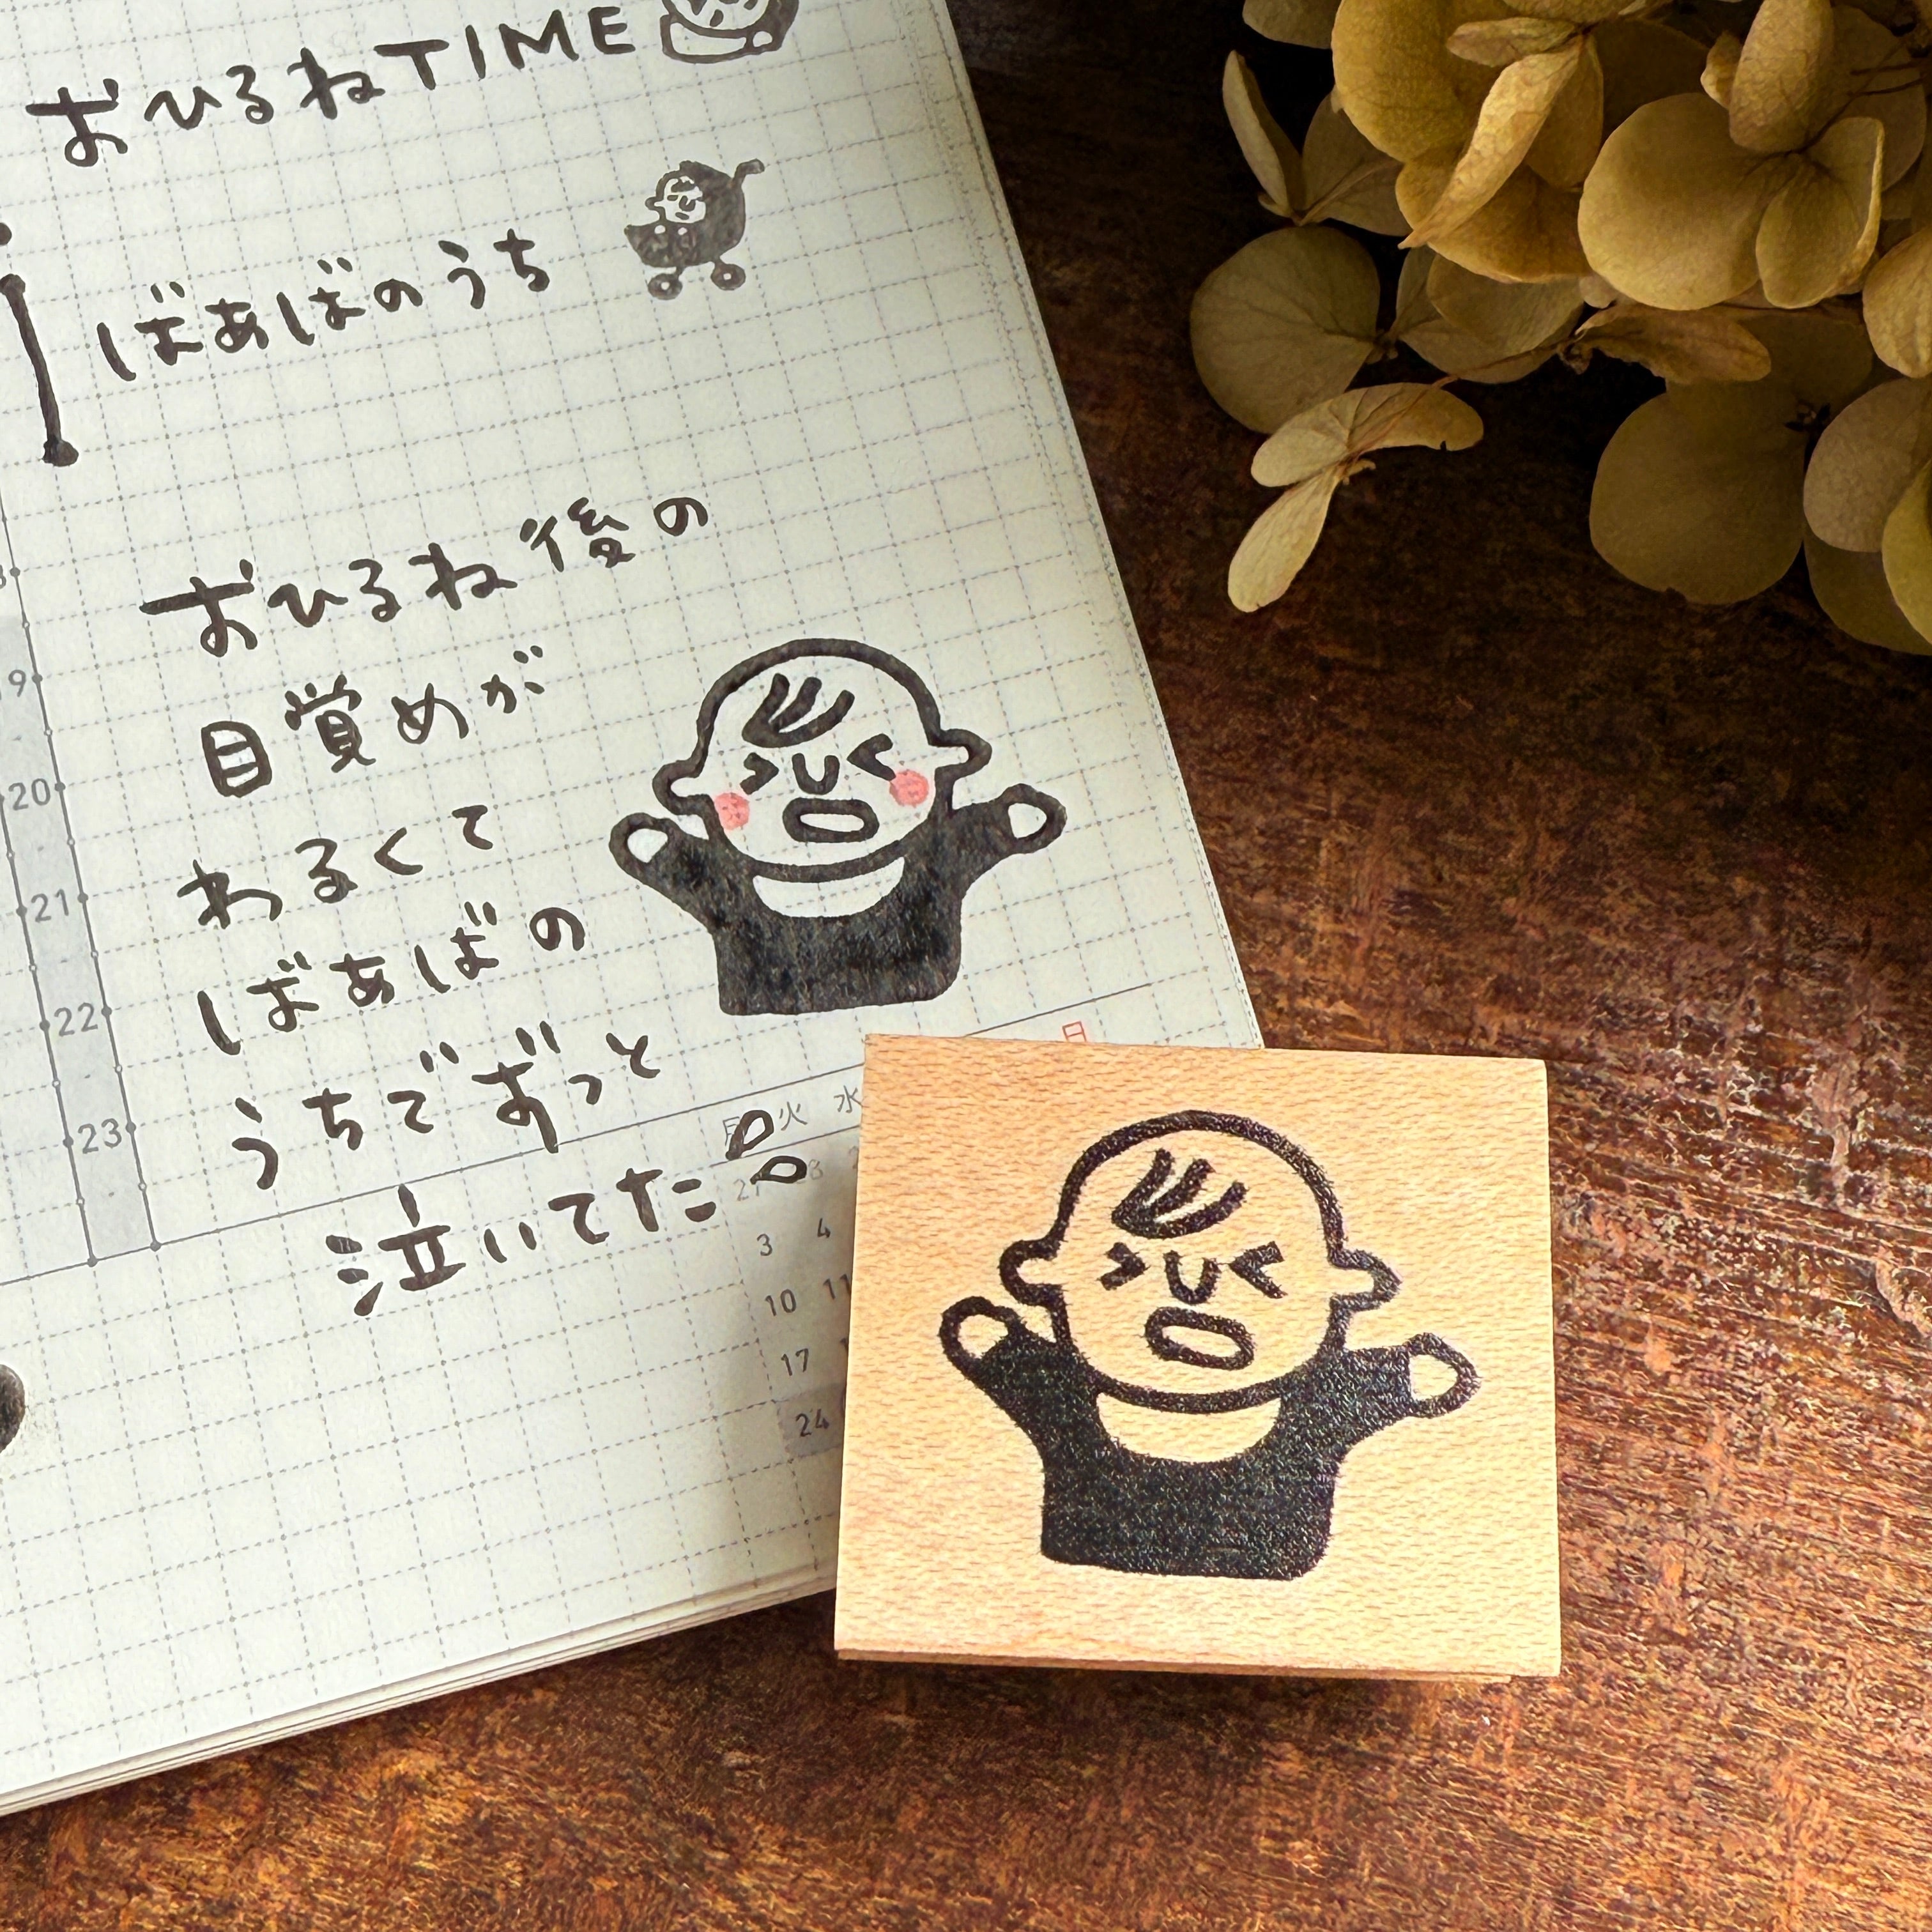 おひるねTIME
ばあばのうち
おひるね後の
目覚めが
わるくて
ばあばの
うちでずっと
泣いてた
9
20
21
22
23
日
月 火 水
27 28
3 4
10 11
17
24